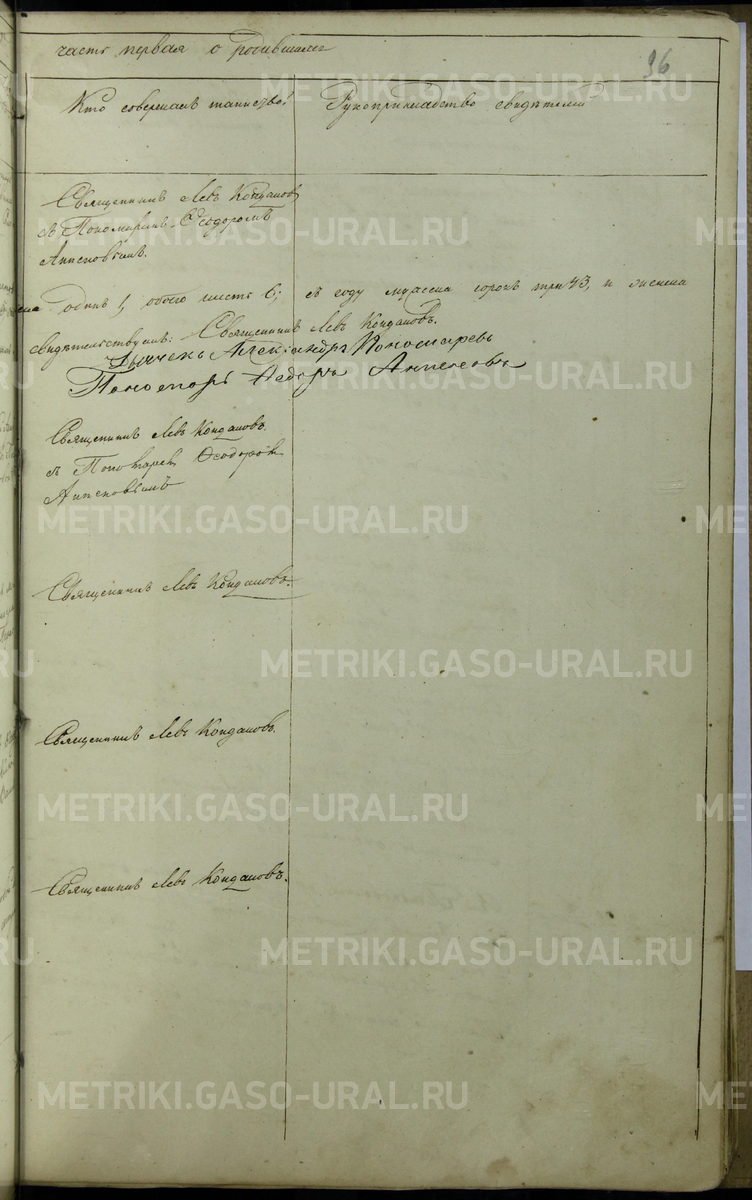 часть первая о родившихся
96
Кто совершалъ таинство?
Рукоприкладство свидѣтелей
Священникъ Левъ Кондаковъ
съ Пономаремъ Ѳеодоромъ
одинъ 1, обоего шесть 6; въ году мужеска сорокъ три 43, и женска
свидѣтельствуемъ: Священникъ Левъ Кондаковъ.
Дьячекъ Александръ Пономаревъ
Пономарь Федоръ
Священникъ Левъ Кондаковъ.
съ Пономарем Ѳеодором
Священникъ Левъ Кондаковъ.
Священникъ Левъ Кондаковъ.
Священникъ Левъ Кондаковъ.
METRIKI.GASO-URAL.RU